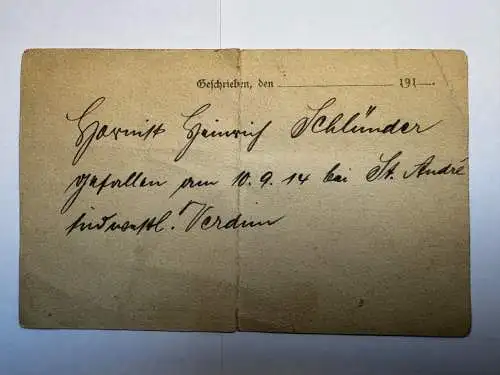 Geschrieben, den ________ 191__.
Hornist Heinrich Schlünder
gefallen am 10.9.14 bei St. André
südwestl. Verdun